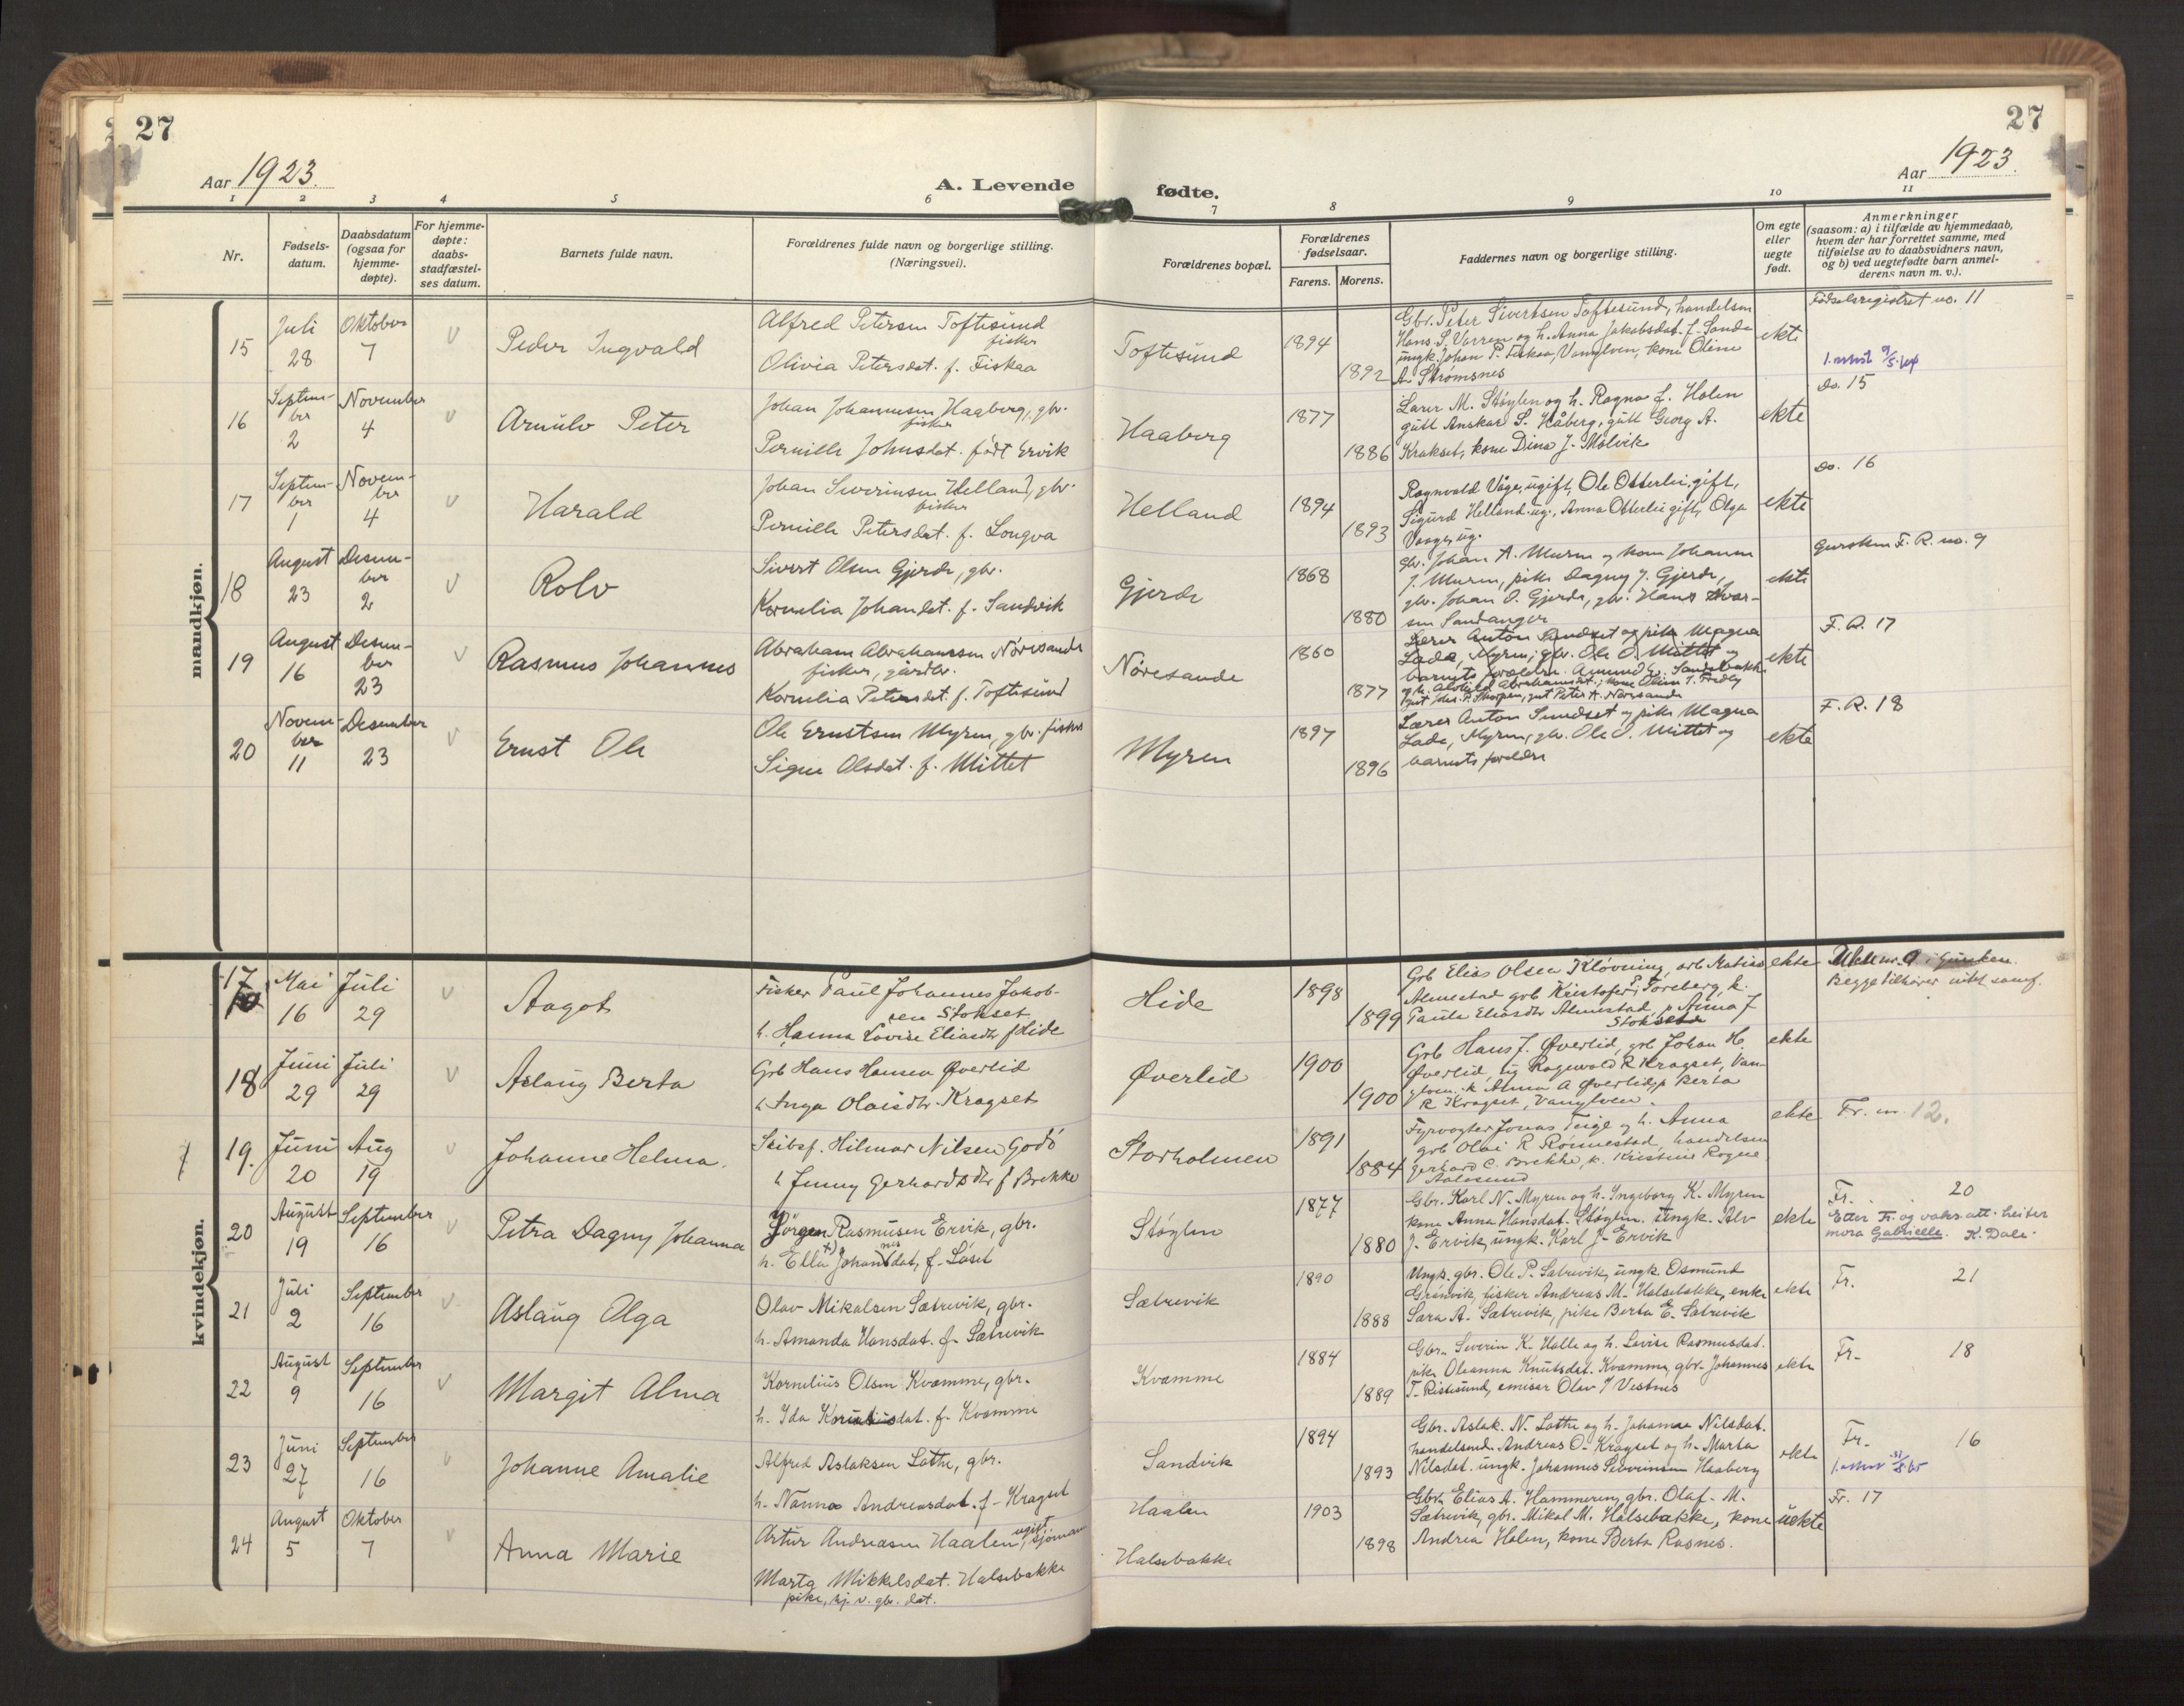 27
27
Aar 1923.
A. Levende fødte.
Aar 1923.
1 2 3 4 5 6 7 8 9 10 11
Nr.
Fødsels-
datum.
Daabsdatum
(ogsaa for
hjemme-
døpte).
For hjemme-
døpte:
daabs-
stadfæstel-
ses datum.
Barnets fulde navn.
Forældrenes fulde navn og borgerlige stilling.
(Næringsvei).
Forældrenes bopæl.
Forældrenes
fødselsaar.
Farens. Morens.
Faddernes navn og borgerlige stilling.
Om egte
eller
uegte
født.
Anmerkninger
(saasom: a) i tilfælde av hjemmedaab,
hvem der har forrettet samme, med
tilføielse av to daabsvidners navn,
og b) ved uegtefødte barn anmel-
derens navn m. v.).
mandkjøn.
15
Juli
28
Oktober
7
Peder Ingvald
Alfred Petersen Toftesund
fisker
Olivia Petersdat. f. Fiskaa
Toftesund
1894
1892
Gbr. Peter Sivertsen Toftesund, handelsm
Hans S. Varren og h. Anna Jakobsdat. f. Sande
ungk. Johan P. Fiskaa, Vanylven, kone Oline
A. Strømsnes
ekte
Fødselsregistret no. 11
16
Septem-
ber
2
November
4
Arnulv Peter
Johan Johannesen Haaberg, gbr.
fisker
Pernille Johnsdat. født Ervik
Haaberg
1877
1886
Lærer M. Støylen og h. Ragna f. Holen
gutt Anskar S. Håberg, gutt Georg A.
Krakset, kone Dina J. Molvik
ekte
Do. 15
17
Septem-
ber
1
Novem-
ber
4
Harald
Johan Severinsen Helland, gbr.
fisker
Pernille Petersdat. f. Longva
Helland
1894
1893
Ragnvald Våge, ugift, Ole Otterlei, gift,
Sigurd Helland. ug., Anna Otterlei gift, Olga
Vaage, ug.
ekte
Do. 16
18
August
23
Desem-
ber
2
Rolv
Sivert Olsen Gjerde, gbr.
Kornelia Johansdat. f. Sandvik
Gjerde
1868
1880
gbr. Johan A. Muren og kone Johanne
J. Muren, pike Dagny J. Gjerde,
gbr. Johan O. Gjerde, gbr. Hans Ivar-
sen Sandanger
ekte
Gursken F. R. no. 9
19
August
16
Desem-
ber
23
Rasmus Johannes
Abraham Abrahamsen Nøresande
fisker, gårdbr.
Kornelia Petersdat. f. Toftesund
Nøresande
1860
1877
Lærer Anton Sundset og pike Magna
Lade, Myren; gbr. Ole O. Mittet og
barnets foreldre.
ekte
F. R. 17
20
Novem-
ber
11
Desember
23
Ernst Ole
Ole Ernstsen Myren, gbr. fisker
Signe Olsdat. f. Mittet
Myren
1897
1896
Lærer Anton Sundset og pike Magna
Lade, Myren, gbr. Ole O. Mittet og
barnets foreldre
ekte
F. R. 18
kvindekjøn.
17
Mai
16
Juli
29
Aagot
Fisker Paul Johannes Jakob-
sen Stokset
h. Hanna Lovise Eliasdtr f Hide
Hide
1898
1899
Grb Elias Olsen Kløvning, arb Matias
Almestad grb Kristofer P. Toreberg, k.
Paula Eliasdtr Almestad, p Anna J
Stokset
ekte
18
Juni
29
Juli
29
Aslaug Berta
Grb Hans Hansen Øverlid
h Inga Olaisdtr Kragset
Øverlid
1900
1900
Grb Hans J. Øverlid, grb Johan H.
Øverlid, ug Ragnvald R Kragset, Van-
ylven, k Anna A Øverlid, p Berta
R Kragset, Vanylven.
ekte
19.
Juni
20
Aug
19
Johanne Helma.
Skibsf. Hilmar Nilsen Godø
h Jenny Gerhardsdtr f Brekke
Storholmen
1891
1884
Fyrvogter Jonas Teige og h. Anna
grb Olai R Rønnestad, handelsm
Gerhard C. Brekke, k. Kristine Rogne
Aalesund
ekte
Fr. nr. 12.
20
August
19
September
16
Petra Dagny Johanna
Jørgen Rasmusen Ervik, gbr.
h. Ella Johannesdat, f. Løset
Støylen
1877
1880
Gbr. Karl N. Myren og h. Ingeborg K. Myren
kone Anna Hansdat. Støylen. Ungk. Alv
J. Ervik, ungk. Karl J. Ervik
ekte
Fr. 20
Etter Fr. og vaks.att. heiter
mora Gabrielle. K. Dale.
21
Juli
2
September
16
Aslaug Olga
Olav Mikalsen Sætrevik, gbr.
h. Amanda Hansdat. f. Sætrevik
Sætrevik
1890
1888
Ungk. gbr. Ole P. Sætrevik, ungk. Osmund
Grønvik, fisker Andreas M. Halsebakke, enke
Sara A. Sætrevik, pike Berta E. Sætrevik
ekte
Fr. 21
22
August
9
September
16
Margit Alma
Kornelius Olsen Kvamme, gbr.
h. Ida Korneliusdat. f. Kvamme
Kvamme
1884
1889
Gbr. Severin K. Halle og h. Lovise Rasmusdat.
pike Oleanna Knutsdat. Kvamme, gbr. Johannes
T. Ristesund, emisær Olav J Vestnes
ekte
Fr. 18
23
Juni
27
September
16
Johanne Amalie
Alfred Aslaksen Løthe, gbr.
h. Nanna Andreasdat. f. Kragset
Sandvik
1894
1893
Gbr. Aslak. N. Løthe og h. Johanna Nilsdat.
handelsmd. Andreas O. Kragset og h. Marta
Nilsdat. ungk. Johannes Severinsen Haaberg
ekte
Fr. 16
24
August
5
Oktober
7
Anna Marie
Artur Andreasen Haalen, ugift sjømann
Marta Mikkelsdat. Halsebakke
pike, hj. v. gbr. dat.
Haalen
Halsebakke
1903
1898
Gbr. Elias A. Hammeren, gbr. Olaf. M.
Sætrevik, gbr. Mikal M. Halsebakke, kone
Andrea Holen, kone Berta Rasnes.
uekte
Fr. 17